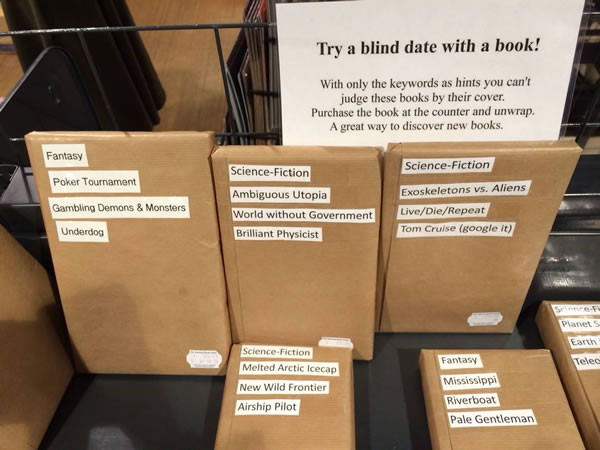 Try a blind date with a book!
With only the keywords as hints you can't
judge these books by their cover.
Purchase the book at the counter and unwrap.
A great way to discover new books.
Fantasy
Poker Tournament
Gambling Demons & Monsters
Underdog
Science-Fiction
Ambiguous Utopia
World without Government
Brilliant Physicist
Science-Fiction
Exoskeletons vs. Aliens
Live/Die/Repeat
Tom Cruise (google it)
Science-Fiction
Melted Arctic Icecap
New Wild Frontier
Airship Pilot
Fantasy
Mississippi
Riverboat
Pale Gentleman
Science-Fi
Planet S
Earth
Teleo